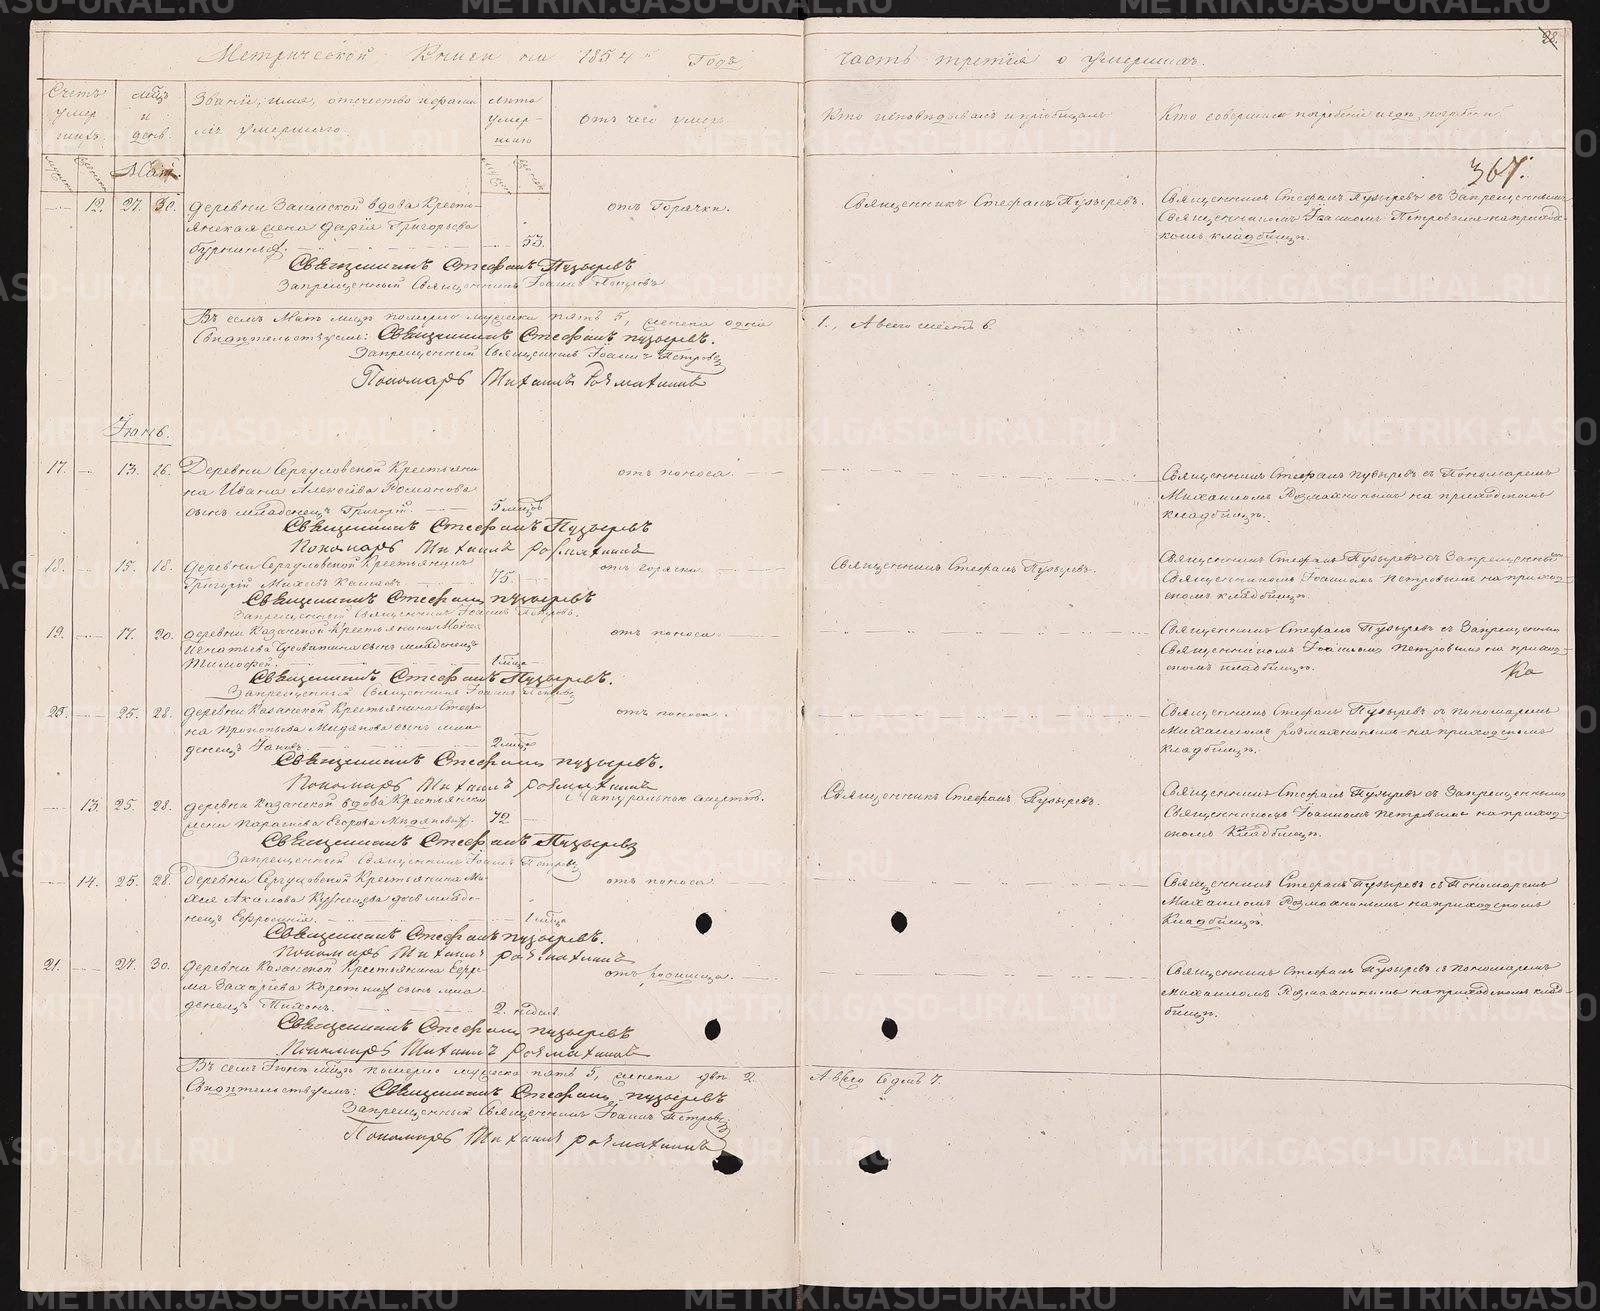 Метрической Книги на 1854й Годъ
часть третія о умершихъ.
28.
367.
Счетъ умершихъ
мѣцъ и день.
Званіе, имя, отечество и фамилія умершаго.
лѣта умершаго
отъ чего умеръ
Кто исповѣдывалъ и пріобщалъ
Кто совершалъ погребеніе и гдѣ погребены
Май.
12. 27. 30. деревни
вдова Крестьянская жена Дарія Григорьева
53.
отъ Горячки.
Священникъ Стефанъ Пузыревъ.
Священникъ Стефанъ Пузыревъ съ Запрещеннымъ
Священникомъ Іоанномъ Петровымъ на приходскомъ кладбищѣ.
Священникъ Стефанъ Пузыревъ
Запрещенный Священникъ Іоаннъ Петровъ
Въ семъ Маѣ мѣцѣ померло мужеска пять 5, женска одна
1., А всего шесть 6.
Свидѣтельствуемъ: Священникъ Стефанъ Пузыревъ.
Запрещенный Священникъ Іоаннъ Петровъ
Пономарь Михаилъ Розмахнинъ
Іюнь.
17. 13. 16. Деревни Сергуловской Крестьянина
Ивана Алексѣева Романова
сынъ младенецъ Григорій.
5 мѣцовъ
отъ поноса.
Священникъ Стефанъ Пузыревъ съ Пономаремъ
Михаиломъ Розмахнинымъ на приходскомъ
кладбищѣ.
Священникъ Стефанъ Пузыревъ
Пономарь Михаилъ Розмахнинъ
18. 15. 18. деревни Сергуловской Крестьянинъ
Григорій Михеевъ
75.
отъ горячки.
Священникъ Стефанъ Пузыревъ.
Священникъ Стефанъ Пузыревъ съ Запрещеннымъ
Священникомъ Іоанномъ Петровымъ на приходскомъ кладбищѣ.
Священникъ Стефанъ Пузыревъ
Запрещенный Священникъ Іоаннъ Петровъ.
19. 17. 20. деревни Казанской Крестьянина Моисея
Игнатьева сынъ младенецъ
Тимофей.
1 мѣца
отъ поноса.
Священникъ Стефанъ Пузыревъ съ Запрещеннымъ
Священникомъ Іоанномъ Петровымъ на приходскомъ кладбищѣ.
Священникъ Стефанъ Пузыревъ.
Запрещенный Священникъ Іоаннъ Петровъ
20. 25. 28. деревни Казанской Крестьянина Стефана
Прокопьева сынъ младенецъ
2 мѣца
отъ поноса.
Священникъ Стефанъ Пузыревъ съ пономаремъ
Михаиломъ Розмахнинымъ на приходскомъ
кладбищѣ.
Священникъ Стефанъ Пузыревъ.
Пономарь Михаилъ Розмахнинъ
13. 25. 28. деревни Казанской вдова Крестьянская
жена Параскева Егорова
72
Натуральною смертію.
Священникъ Стефанъ Пузыревъ.
Священникъ Стефанъ Пузыревъ съ Запрещеннымъ
Священникомъ Іоанномъ Петровымъ на приходскомъ Кладбищѣ.
Священникъ Стефанъ Пузыревъ
Запрещенный Священникъ Іоаннъ Петровъ
14. 25. 28. Деревни Сергуловской Крестьянина
Кузнецова дочь младенецъ Ефросинія.
1 мѣца
отъ поноса.
Священникъ Стефанъ Пузыревъ съ Пономаремъ
Михаиломъ Розмахнинымъ на приходскомъ
Кладбищѣ.
Священникъ Стефанъ Пузыревъ.
Пономарь Михаилъ Розмахнинъ
21. 27. 30. деревни Казанской Крестьянина Ефрема
Захарева сынъ младенецъ Тихонъ.
2. недѣль.
отъ родимца.
Священникъ Стефанъ Пузыревъ съ пономаремъ
Михаиломъ Розмахнинымъ на приходскомъ кладбищѣ.
Священникъ Стефанъ Пузыревъ
Пономарь Михаилъ Розмахнинъ
Въ семъ Іюнѣ мѣцѣ померло мужеска пять 5, женска двѣ 2.
А всего Седмь 7.
Свидѣтельствуемъ: Священникъ Стефанъ Пузыревъ
Запрещенный Священникъ Іоаннъ Петровъ
Пономарь Михаилъ Розмахнинъ
METRIKI.GASO-URAL.RU